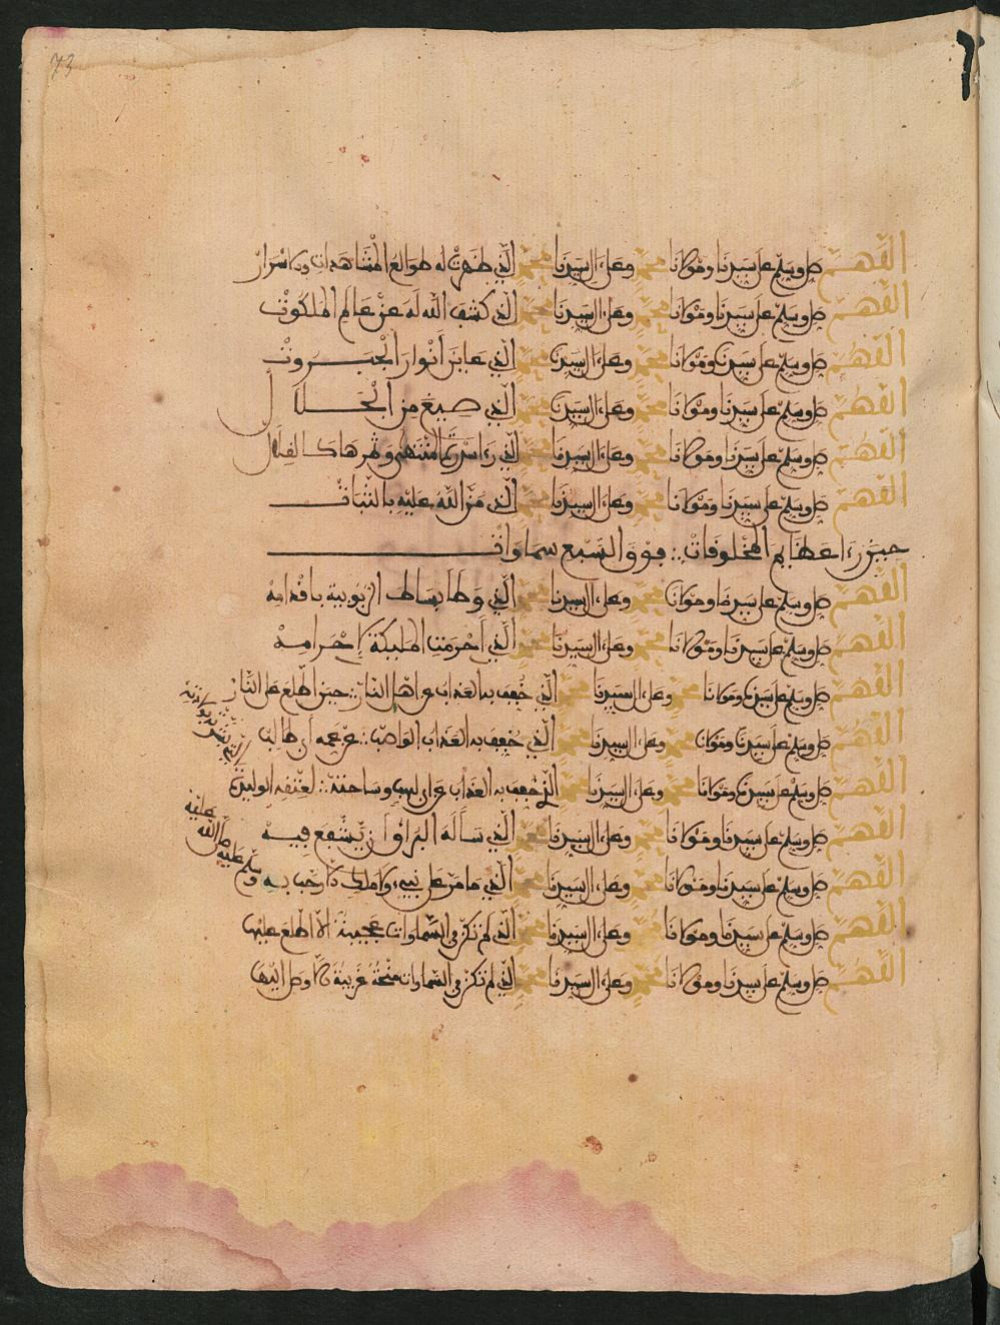 73
اللهم صل وسلم على سيدنا ومولانا محمد وعلى ءال سيدنا محمد الذي ظهرت له طوالع المشاهدات والاسرار
اللهم صل وسلم على سيدنا ومولانا محمد وعلى ءال سيدنا محمد الذي كشف الله له عن عالم الملكوت
اللهم صل وسلم على سيدنا ومولانا محمد وعلى ءال سيدنا محمد الذي عاين أنوار الجبروت
اللهم صل وسلم على سيدنا ومولانا محمد وعلى ءال سيدنا محمد الذي صيغ من الجلال
اللهم صل وسلم على سيدنا ومولانا محمد وعلى ءال سيدنا محمد الذي رءا سدرة المنتهى وثمرها كالفلال
اللهم صل وسلم على سيدنا ومولانا محمد وعلى ءال سيدنا محمد الذي من الله عليه بالثبات
حين رءا عظايم المخلوفات فوق السبع سماوات
اللهم صل وسلم على سيدنا ومولانا محمد وعلى ءال سيدنا محمد الذي وطا بساط الربوبية بافدامه
اللهم صل وسلم على سيدنا ومولانا محمد وعلى ءال سيدنا محمد الذي أحرمت الملبكة لإحرامه
اللهم صل وسلم على سيدنا ومولانا محمد وعلى ءال سيدنا محمد الذي خفف به العذاب عن اهل النار حين اطلع على النار
اللهم صل وسلم على سيدنا ومولانا محمد وعلى ءال سيدنا محمد الذي خفف به العذاب الواصب عن عمه أبي طالب
اللهم صل وسلم على سيدنا ومولانا محمد وعلى ءال سيدنا محمد الذي خفف به العذاب عن ابي لهب وساحته لعتفه الوليدة
التي بشرته بولادته
اللهم صل وسلم على سيدنا ومولانا محمد وعلى ءال سيدنا محمد الذي سأله البراق أن يشفع فيه
اللهم صل وسلم على سيدنا ومولانا محمد وعلى ءال سيدنا محمد الذي ما مر على نبيء ولا ملك الا رحب به و
سلم عليه صلى الله عليه
اللهم صل وسلم على سيدنا ومولانا محمد وعلى ءال سيدنا محمد الذي لم تكن في السماوات عجيبة الا اطلع عليها
اللهم صل وسلم على سيدنا ومولانا محمد وعلى ءال سيدنا محمد الذي لم تكن في السماوات منحة غريبة الا وصل اليها